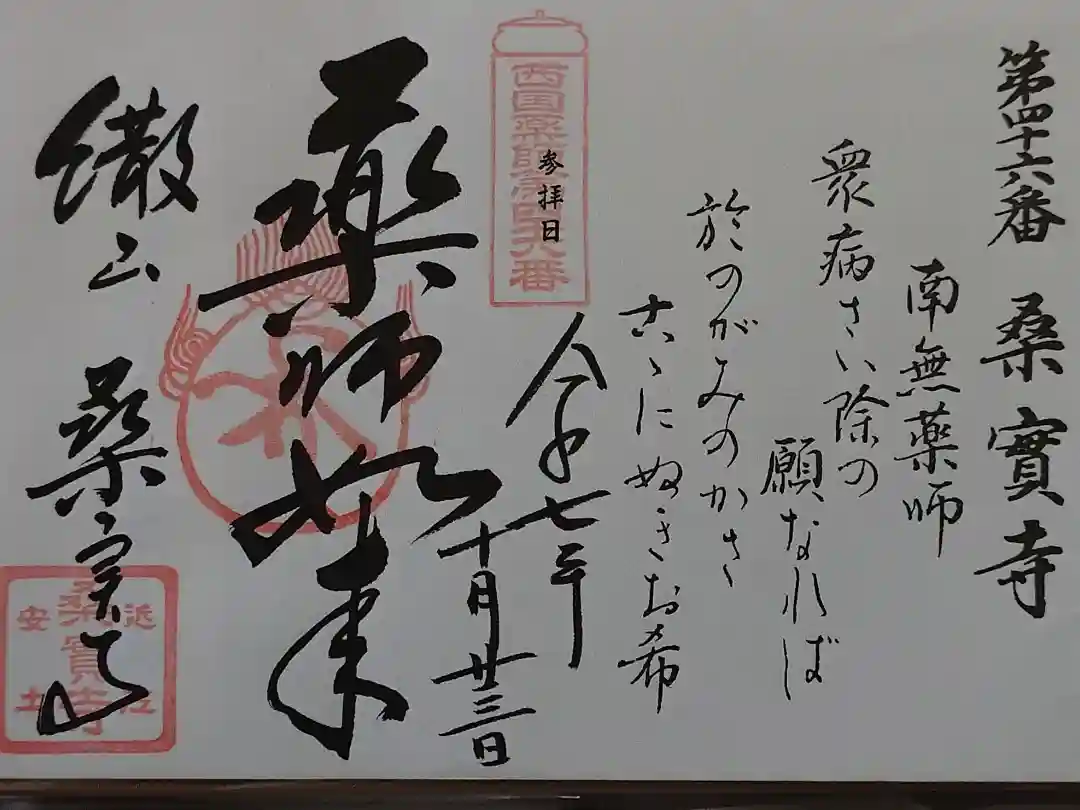 第四十六番 桑實寺
南無薬師
衆病さい除の
願なれば
於のがみのかさ
古ゝにぬきお希
西国薬師第四十六番
参拝日
令和七年
十月廿三日
薬師如来
繖山 桑實寺
近江
安土
桑實寺